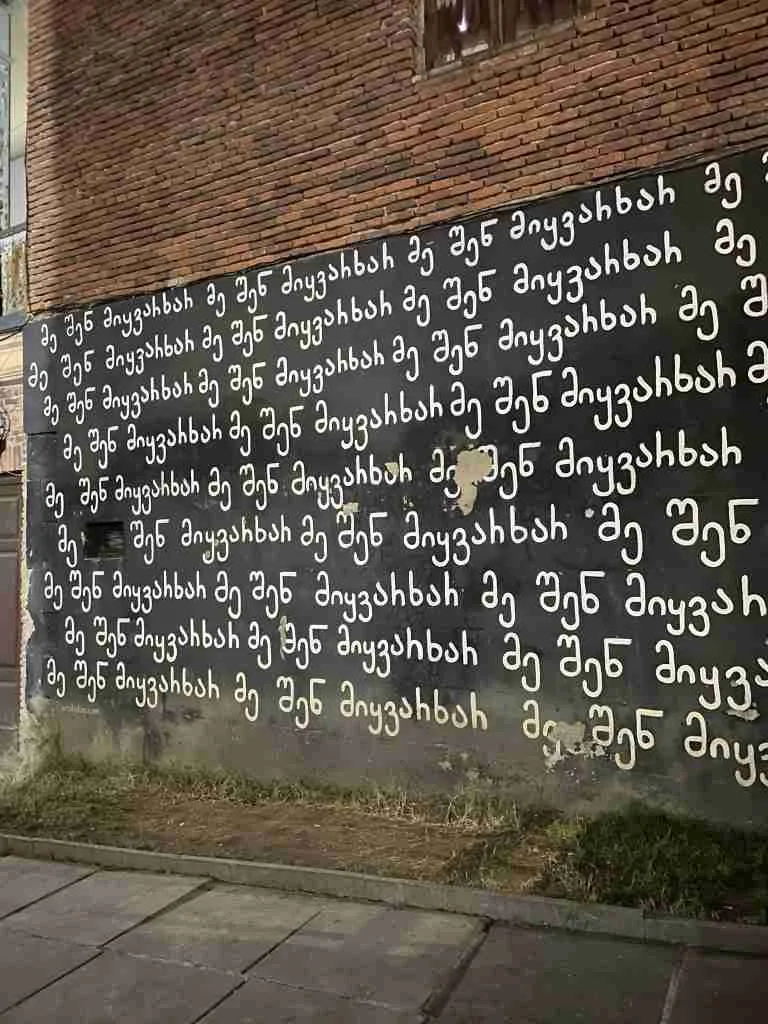 მე შენ მიყვარხარ მე შენ მიყვარხარ მე შენ მიყვარხარ მე
მე შენ მიყვარხარ მე შენ მიყვარხარ მე შენ მიყვარხარ მე
მე შენ მიყვარხარ მე შენ მიყვარხარ მე შენ მიყვარხარ მე
მე შენ მიყვარხარ მე შენ მიყვარხარ მე შენ მიყვარხარ
მე შენ მიყვარხარ მე შენ მიყვარხარ მე შენ მიყვარხარ
მე შენ მიყვარხარ მე შენ მიყვარხარ მე შენ
მე შენ მიყვარხარ მე შენ მიყვარხარ მე შენ მიყვარ
მე შენ მიყვარხარ მე შენ მიყვარხარ მე შენ მიყვ
მე შენ მიყვარხარ მე შენ მიყვარხარ მე შენ მიყვ